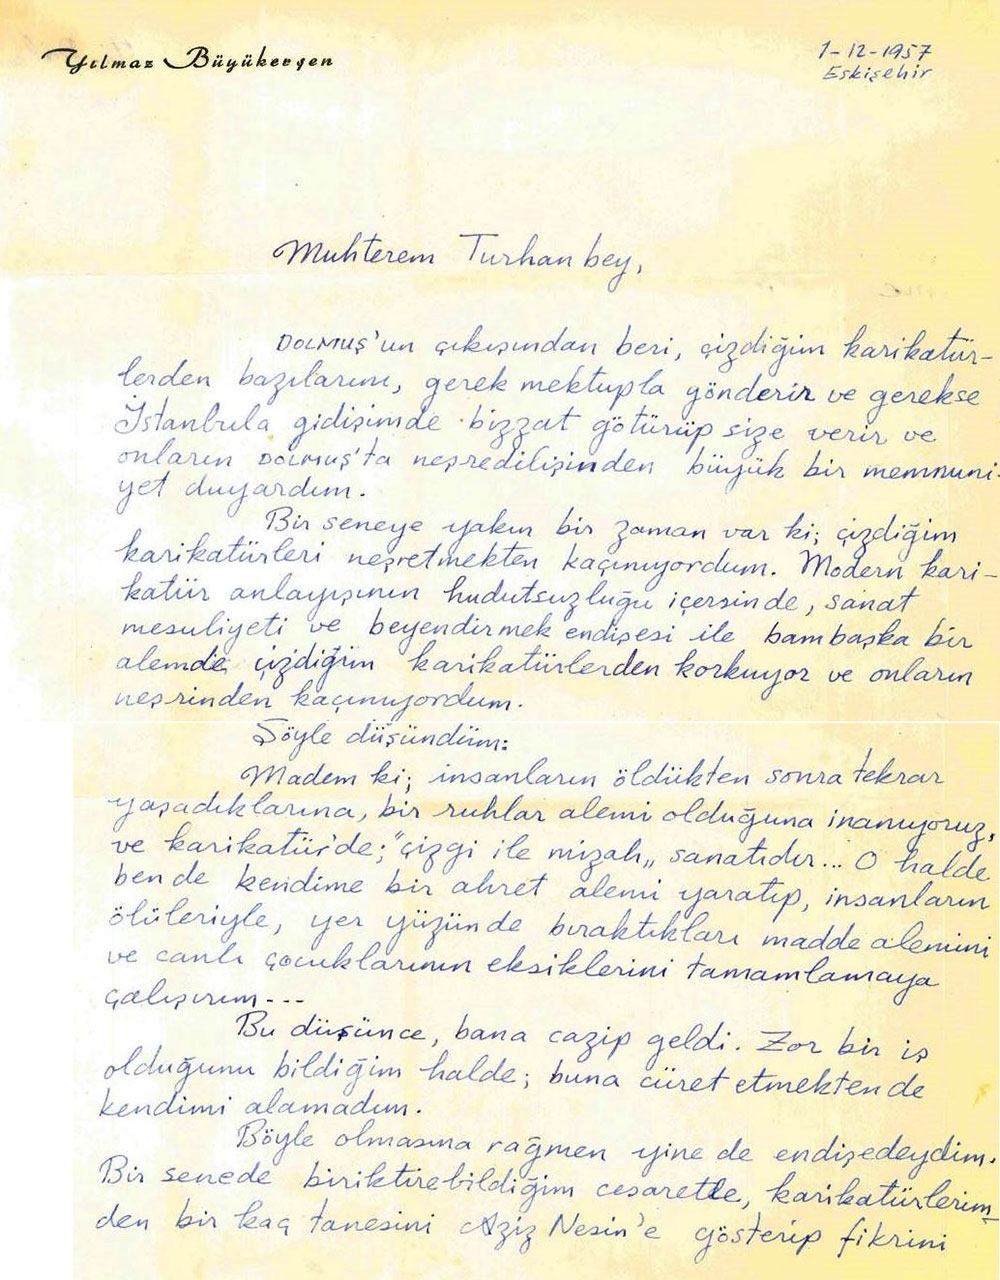 Yılmaz Büyükerşen
1-12-1957
Eskişehir
Muhterem Turhan bey,
DOLMUŞ'un çıkışından beri, çizdiğim karikatür-
lerden bazılarını, gerek mektupla gönderir ve gerekse
İstanbula gidişimde bizzat götürüp size verir ve
onların DOLMUŞ'ta neşredilişinden büyük bir memnuni-
yet duyardım.
Bir seneye yakın bir zaman var ki; çizdiğim
karikatürleri neşretmekten kaçınıyordum. Modern kari-
katür anlayışının hudutsuzluğu içersinde, sanat
mesuliyeti ve beyendirmek endişesi ile bambaşka bir
alemde çizdiğim karikatürlerden korkuyor ve onların
neşrinden kaçınıyordum.
Şöyle düşündüm:
Madem ki; insanların öldükten sonra tekrar
yaşadıklarına, bir ruhlar alemi olduğuna inanıyoruz,
ve karikatür'de; "çizgi ile mizah„ sanatıdır... O halde
ben de kendime bir ahret alemi yaratıp, insanların
ölüleriyle, yer yüzünde bıraktıkları madde alemini
ve canlı çocuklarının eksiklerini tamamlamaya
çalışırım---
Bu düşünce, bana cazip geldi. Zor bir iş
olduğunu bildiğim halde; buna cüret etmekten de
kendimi alamadım.
Böyle olmasına rağmen yine de endişedeydim.
Bir senede biriktirebildiğim cesaretle, karikatürlerim-
den bir kaç tanesini Aziz Nesin'e gösterip fikrini